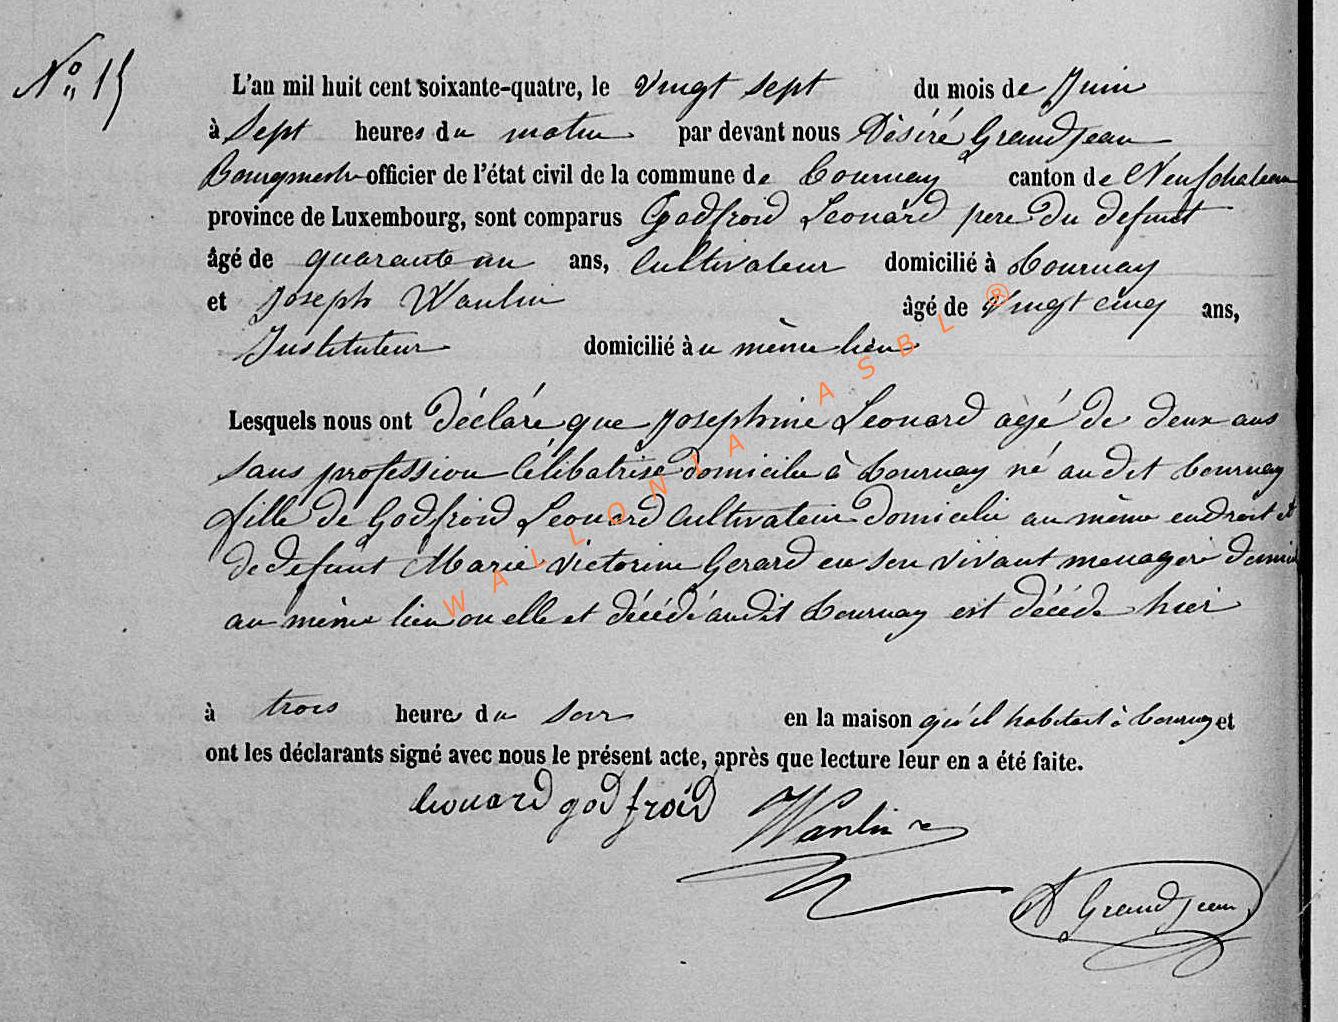 N° 15
L'an mil huit cent soixante-quatre, le vingt sept du mois de Juin
à Sept heures du matin par devant nous Désiré Grandjean
Bourgmestre officier de l'état civil de la commune de Tournay canton de Neufchateau
province de Luxembourg, sont comparus Godfroid Leonard pere du defunt
âgé de quarante un ans, Cultivateur domicilié à Tournay
et Joseph Wanlin âgé de vingt cinq ans,
Instituteur domicilié au même lieu
Lesquels nous ont déclaré que Josephine Leonard agé de deux ans
sans profession Célibatrise domicilie à Tournay né au dit Tournay
fille de Godfroid Leonard Cultivateur domicilie au même endroit et
de defunt Marie Victorine Gerard en son vivant menagere domi
au même lieu ou elle et décédé audit Tournay est décédé hier
à trois heures du soir en la maison qu'il habitait à Tournay et
ont les déclarants signé avec nous le présent acte, après que lecture leur en a été faite.
Leonard godfroid Wanlin
D Grandjean
WALLONIA ASBL ®